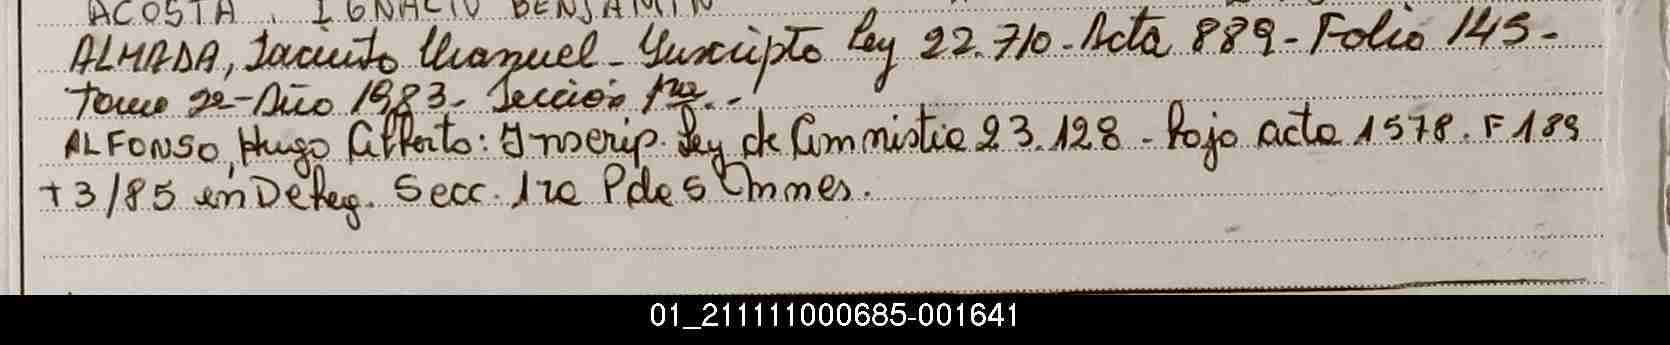 ACOSTA, IGNACIO BENJAMIN
ALMADA, Jacinto Manuel - Inscripto Ley 22.710 - Acta 889 - Folio 145 -
Tomo 2º - Año 1983 - Sección 1ra. -
ALFONSO, Hugo Alberto: Inscrip. Ley de Amnistia 23.128 - Bajo acta 1578. F 189
T 3/85 en Deleg. Secc. 1ra Pdas Mnes.
01_211111000685-001641